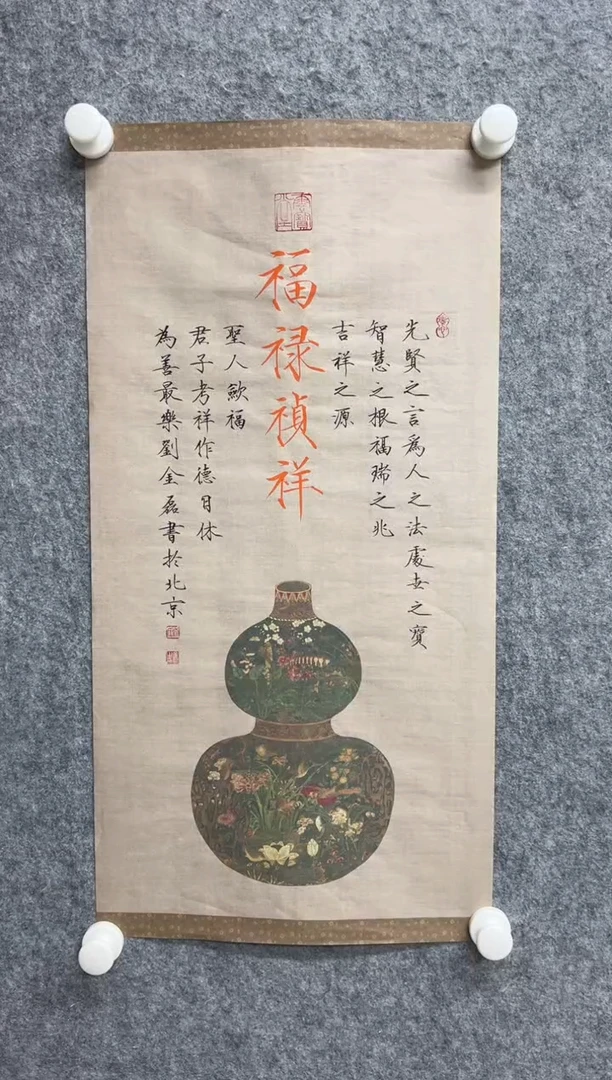 福禄祯祥
光賢之言爲人之法處世之寶
智慧之根福瑞之兆
吉祥之源
聖人歛福
君子考祥作德日休
為善最樂劉金磊書於北京